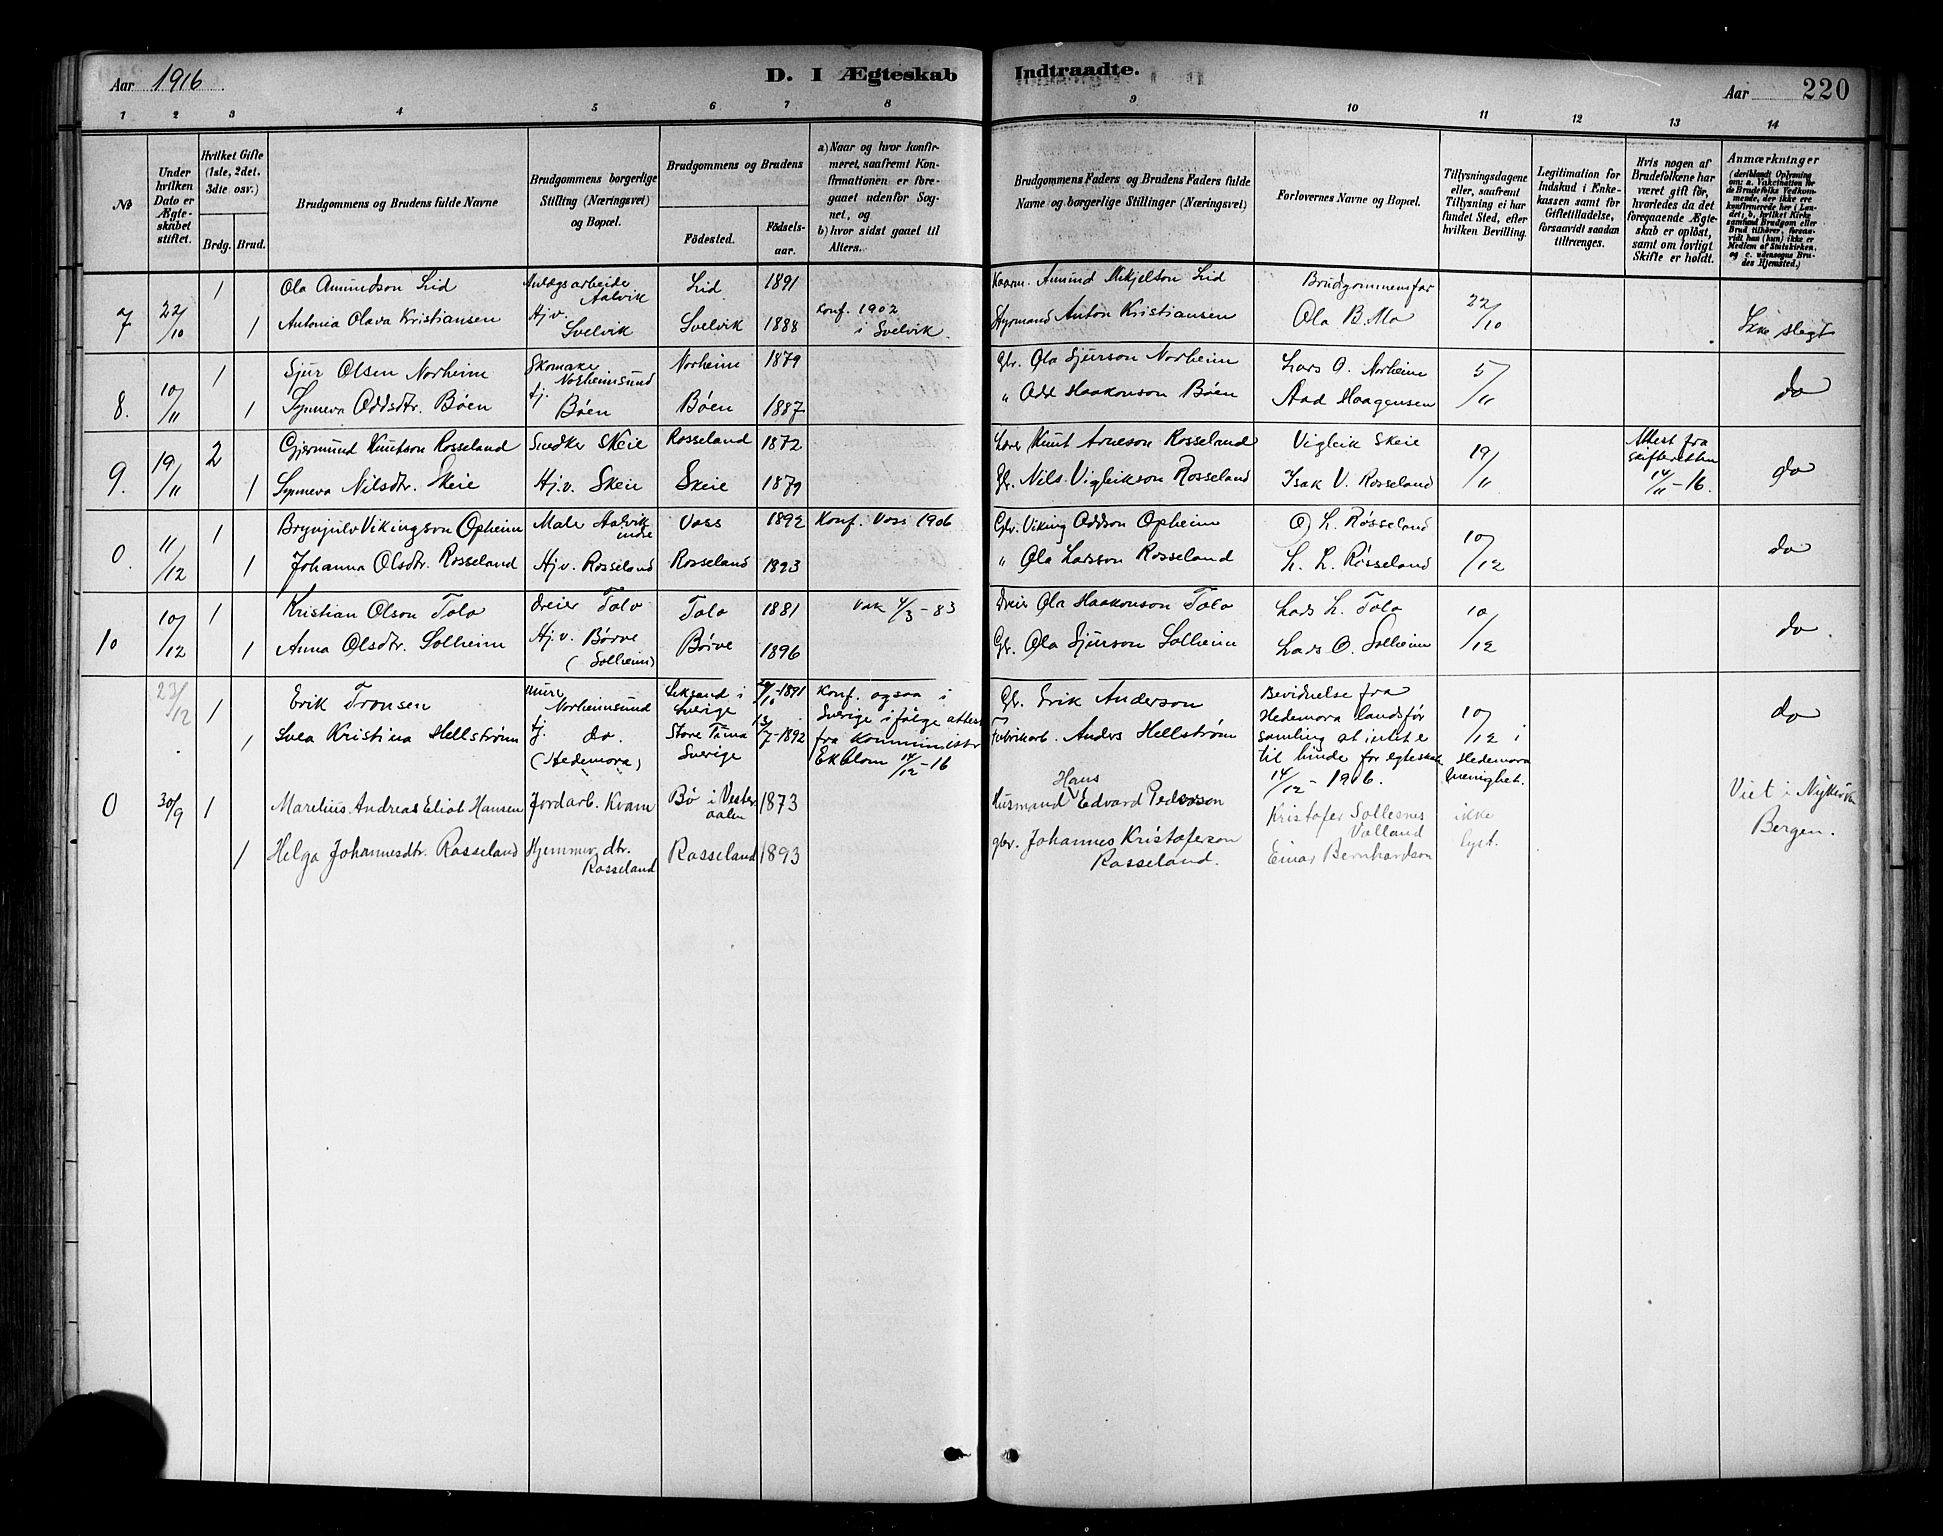 Aar 1916
D. I Ægteskab Indtraadte.
Aar 220
1 2 3 4 5 6 7 8 9 10 11 12 13 14
No
Under hvilken Dato er Ægteskabet stiftet.
Hvilket Gifte (1ste, 2det, 3die osv.)
Brdg. Brud.
Brudgommens og Brudens fulde Navne
Brudgommens borgerlige Stilling (Næringsvei) og Bopæl.
Brudgommens og Brudens
Födested.
Födselsaar.
a) Naar og hvor konfirmeret, saafremt Konfirmationen er foregaaet udenfor Sognet, og
b) hvor sidst gaaet til Alters.
Brudgommens Faders og Brudens Faders fulde Navne og borgerlige Stillinger (Næringsvei)
Forlovernes Navne og Bopæl.
Tillysningsdagene eller, saafremt Tillysning ei har fundet Sted, efter hvilken Bevilling.
Legitimation for Indskud i Enkekassen samt for Giftetilladelse, forsaavidt saadan tiltrænges.
Hvis nogen af Brudefolkene har været gift før, hvorledes da det foregaaende Ægteskab er opløst, samt om lovligt Skifte er holdt.
Anmærkninger
(deriblandt Oplysning om: a. Vakcination for de Brudefolks Vedkommende, der ikke ere konfirmerede her i Landet; b. hvilket Kirkesamfund Brudgom eller Brud tilhører, forsaavidt han (hun) ikke er Medlem af Statskirken, og c. udensogns Brudes Hjemsted.)
7 22/10 1 Ola Amundson Lid Anlægsarbeide Aalvik Lid 1891 Kaarm. Amund Mikjelson Lid Brudgommens far 22/10 Ikke slegt
1 Antonia Olava Kristiansen Hjv. Svelvik Svelvik 1888 Konf. 1902 i Svelvik. Styrmand Anton Kristiansen Ola B. Mo
8. 10/11 1 Sjur Olsen Norheim Skomaker Norheimsund Norheim 1879 Gbr. Ola Sjurson Norheim Lars O. Norheim 5/11 do
1 Synneva Oddsdtr. Bøen tj. Bøen Bøen 1887 " Odd Haakonson Bøen Aad Haagensen
9. 19/11 2 Gjermund Knutson Rosseland Snedker Skeie Rosseland 1872 Knut Arneson Rosseland Vigleik Skeie 19/11 Attest fra skifteretten 14/11-16. do
1 Synneva Nilsdtr. Skeie Hj.v. Skeie Skeie 1879 Gbr. Nils Vigleikson Rosseland Isak V. Rosseland
0. 11/12 1 Brynjulv Vikingson Opheim Maler Aalvik indre Voss 1892 Konf. Voss 1906 Gbr. Viking Oddson Opheim O. L. Røsseland 10/12 do
1 Johanna Olsdtr. Rosseland Hjv. Rosseland Rosseland 1893 " Ola Larsson Rosseland L. L. Røsseland
10 10/12 1 Kristian Olson Tolo Dreier Tolo Tolo 1881 Vak 4/3-83 Dreier Ola Haakonson Tolo Lars L. Tolo 10/12 do.
1 Anna Olsdtr. Solheim Hj.v. Børve (Solheim) Børve 1896 Gbr. Ola Sjurson Solheim Lars O. Solheim
23/12 1 Erik Tronsen Murer Norheimsund Leksand i Sverige 1891 Konf. ogsaa i Sverige ifølge attest fra Kommunister Ekblom 14/12-16 Gbr. Erik Anderson Bevidnelse fra Hedemora landsførsamling at intet e til hinde for egteskab 14/12-1916. 10/12 i Hedemora menighet. do
1 Svea Kristina Hellstrøm tj. do. (Hedemora) Store Tuna Sverige 13/7-1892 Fabrikarb. Anders Hellstrøm
0 30/9 1 Marelius Andreas Eliot Hansen Jordarb. Kvam Bø i Vesteraalen 1873 Husmand Hans Edvard Pedersson Kristofer Sollesnes Valland ikke lyst. Viet i Nykirken Bergen.
1 Helga Johannesdtr. Rosseland Hjemmev. dtr. Rosseland Rosseland 1893 gbr. Johannes Kristoferson Rosseland. Einar Bernhardson